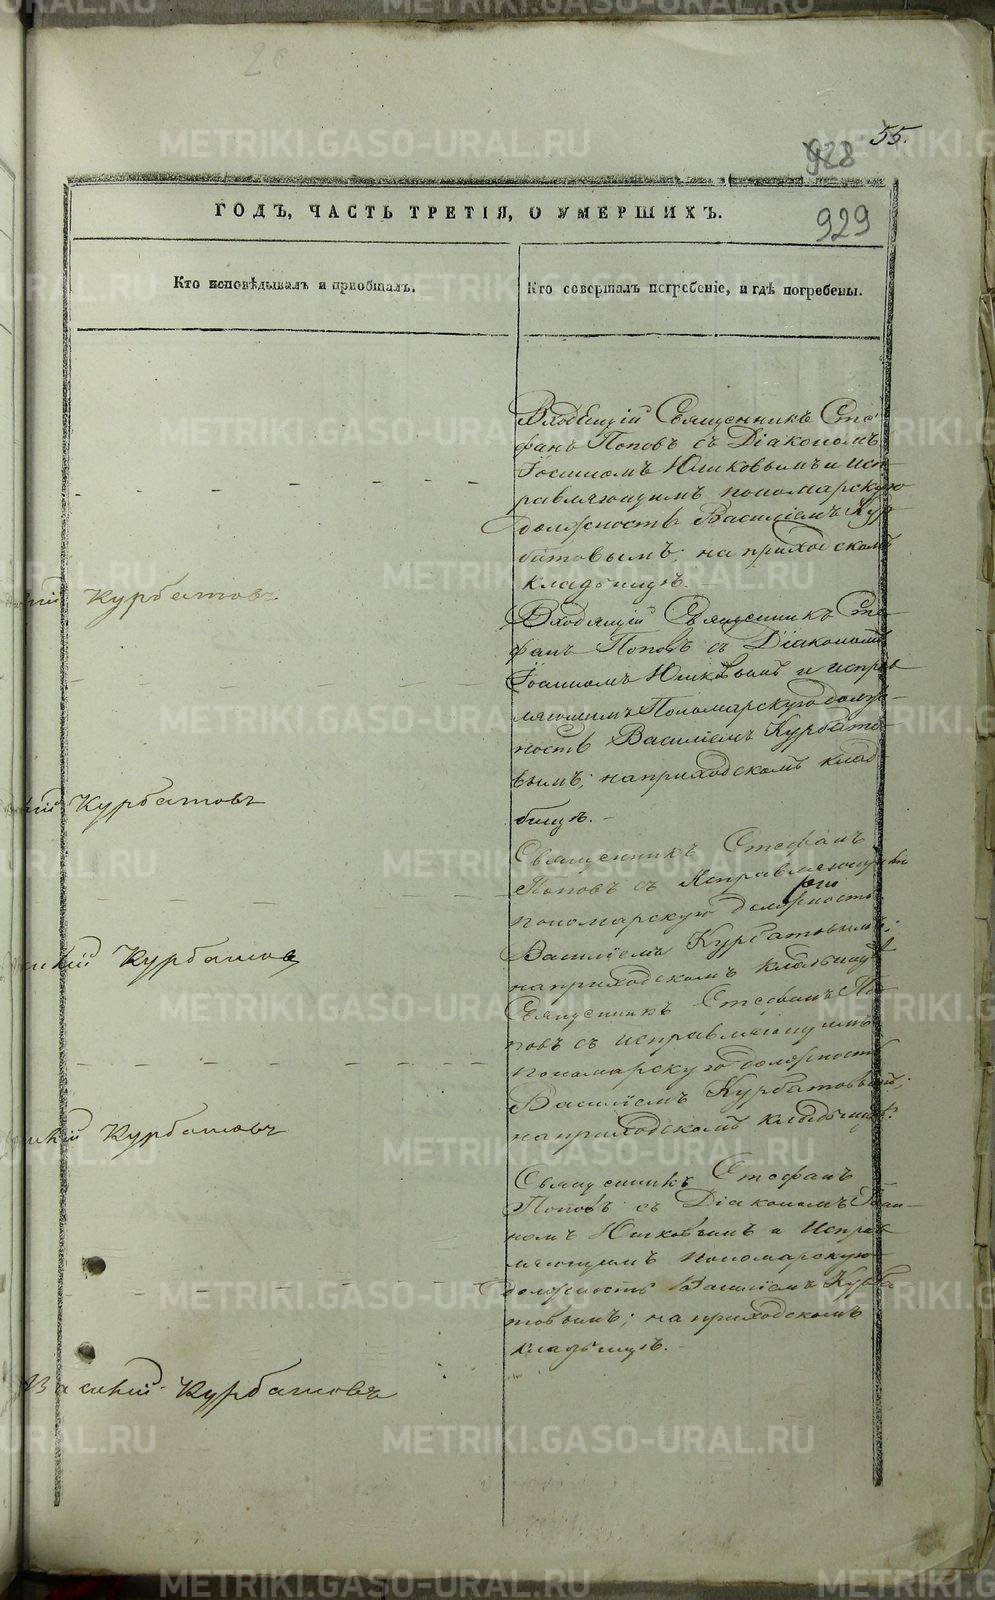 55.
928
929
ГОДЪ, ЧАСТЬ ТРЕТІЯ, О УМЕРШИХЪ.
Кто исповѣдывалъ и приобщалъ.
Кто совершалъ погребеніе, и гдѣ погребены.
Входящій Священникъ Сте-
фанъ Поповъ съ Діакономъ
Іоанномъ Юшковымъ и исп-
равляющимъ пономарскую
должность Василіемъ Кур-
батовымъ; на приходскомъ
кладбищѣ.
Курбатовъ
Входящій Священникъ Сте-
фанъ Поповъ съ Діакономъ
Іоанномъ Юшковымъ и исправ
ляющимъ Пономарскую долж-
ность Василіемъ Курбато-
вымъ; на приходскомъ клад
бищѣ.
Курбатовъ
Священникъ Стефанъ
Поповъ съ Исправляющимъ
пономарскую должность
Василіемъ Курбатовымъ;
на приходскомъ кладбищѣ
Курбатовъ
Священникъ Стефанъ По-
повъ съ исправляющимъ
пономарскую должность
Василіемъ Курбатовымъ;
на приходскомъ кладбищѣ.
Курбатовъ
Священникъ Стефанъ
Поповъ съ Діакономъ Іоан-
номъ Юшковымъ и Исправ
ляющимъ пономарскую
должность Василіемъ Курба
товымъ; на приходскомъ
кладбищѣ.
Василій Курбатовъ
METRIKI.GASO-URAL.RU